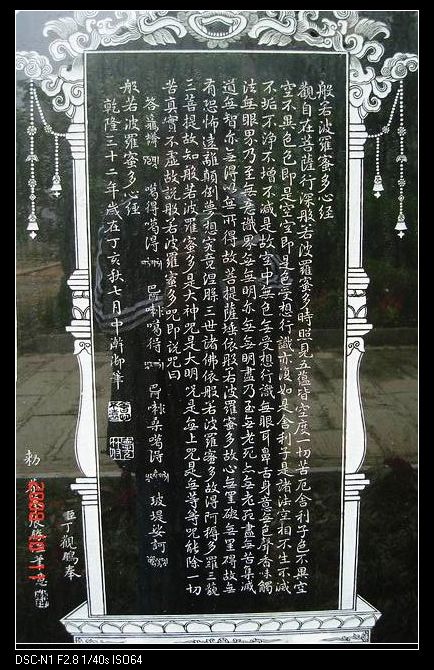 般若波羅蜜多心經
觀自在菩薩行深般若波羅蜜多時照見五蘊皆空度一切苦厄舍利子色不異空
空不異色色即是空空即是色受想行識亦復如是舍利子是諸法空相不生不滅
不垢不淨不增不減是故空中無色無受想行識無眼耳鼻舌身意無色聲香味觸
法無眼界乃至無意識界無無明亦無無明盡乃至無老死亦無老死盡無苦集滅
道無智亦無得以無所得故菩提薩埵依般若波羅蜜多故心無罣礙無罣礙故無
有恐怖遠離顛倒夢想究竟涅槃三世諸佛依般若波羅蜜多故得阿耨多羅三藐
三菩提故知般若波羅蜜多是大神咒是大明咒是無上咒是無等等咒能除一切
苦真實不虛故說般若波羅蜜多咒即說咒曰
噶得噶得 噶得 噶得
般若波羅蜜多心經
乾隆三十二年歲在丁亥秋七月中澣御筆
丁觀鵬奉
勅恭
DSC-N1 F2.8 1/40s ISO64